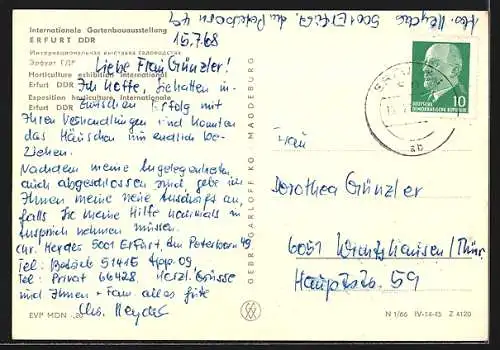 Internationale Gartenbauausstellung
ERFURT DDR
Интернациональная выставка садоводства
Эрфурт ГДР
Horticulture exhibition international
Erfurt DDR
Exposition horticulture internationale
Erfurt DDR
5001 Erfurt, Peterborn 49
15.7.68
Liebe Frau Günzler!
Ich hoffe, Sie hatten in-
zwischen Erfolg mit
Ihren Verhandlungen und konnten
das Häuschen nun endlich be-
ziehen.
Nachdem meine Angelegenheiten
auch abgeschlossen sind, gebe ich
Ihnen meine neue Anschrift an,
falls Sie meine Hilfe nochmals in
Anspruch nehmen müssen.
Chr. 5001 Erfurt, Peterborn 49
Tel: Betrieb 51415 App. 09
Tel: Privat 66428 Herzl. Grüsse
und Ihnen + Fam. alles gute
EVP MDN -,20
GEBR. GARLOFF KG. MAGDEBURG
DEUTSCHE
DEMOKRATISCHE REPUBLIK
10
Frau
Dorothea Günzler
6051 /Thür.
Hauptstr. 59
N 1/66 IV-14-45 Z 4120